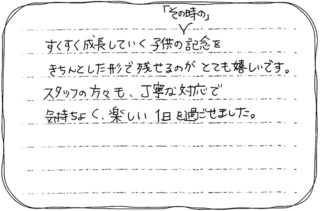 「その時の」
すくすく成長していく子供の記念を
きちんとした形で残せるのがとても嬉しいです。
スタッフの方々も、丁寧な対応で
気持ちよく、楽しい1日を過ごせました。